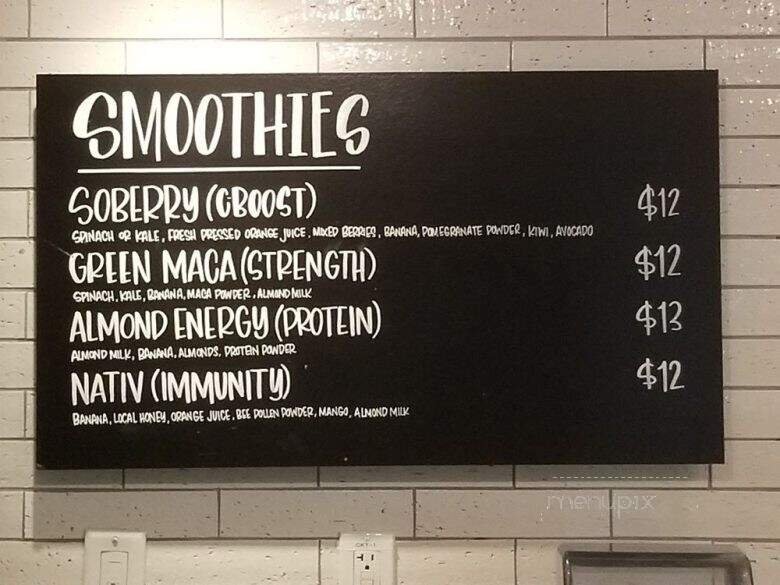 SMOOTHIES
SOBERRY (CBOOST) $12
SPINACH OR KALE, FRESH PRESSED ORANGE JUICE, MIXED BERRIES, BANANA, POMEGRANATE POWDER, KIWI, AVOCADO
GREEN MACA (STRENGTH) $12
SPINACH, KALE, BANANA, MACA POWDER, ALMOND MILK
ALMOND ENERGY (PROTEIN) $13
ALMOND MILK, BANANA, ALMONDS, PROTEIN POWDER
NATIV (IMMUNITY) $12
BANANA, LOCAL HONEY, ORANGE JUICE, BEE POLLEN POWDER, MANGO, ALMOND MILK
menupix
CKT-1